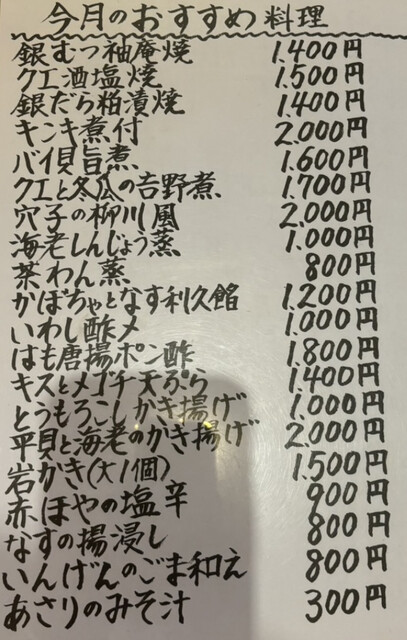 今月のおすすめ料理
銀むつ袖庵焼 1.400円
クエ酒塩焼 1.500円
銀だら粕漬焼 1.400円
キンキ煮付 2.000円
バイ貝旨煮 1.600円
クエと冬瓜の吉野煮 1.700円
穴子の柳川風 2.000円
海老しんじょう蒸 1.000円
茶わん蒸 800円
かぼちゃとなす利久餡 1.200円
いわし酢〆 1.000円
はも唐揚ポン酢 1.800円
キスとメゴチ天ぷら 1.400円
とうもろこしかき揚げ 1.000円
平貝と海老のかき揚げ 2.000円
岩かき(大1個) 1.500円
赤ほやの塩辛 900円
なすの揚浸し 800円
いんげんのごま和え 800円
あさりのみそ汁 300円